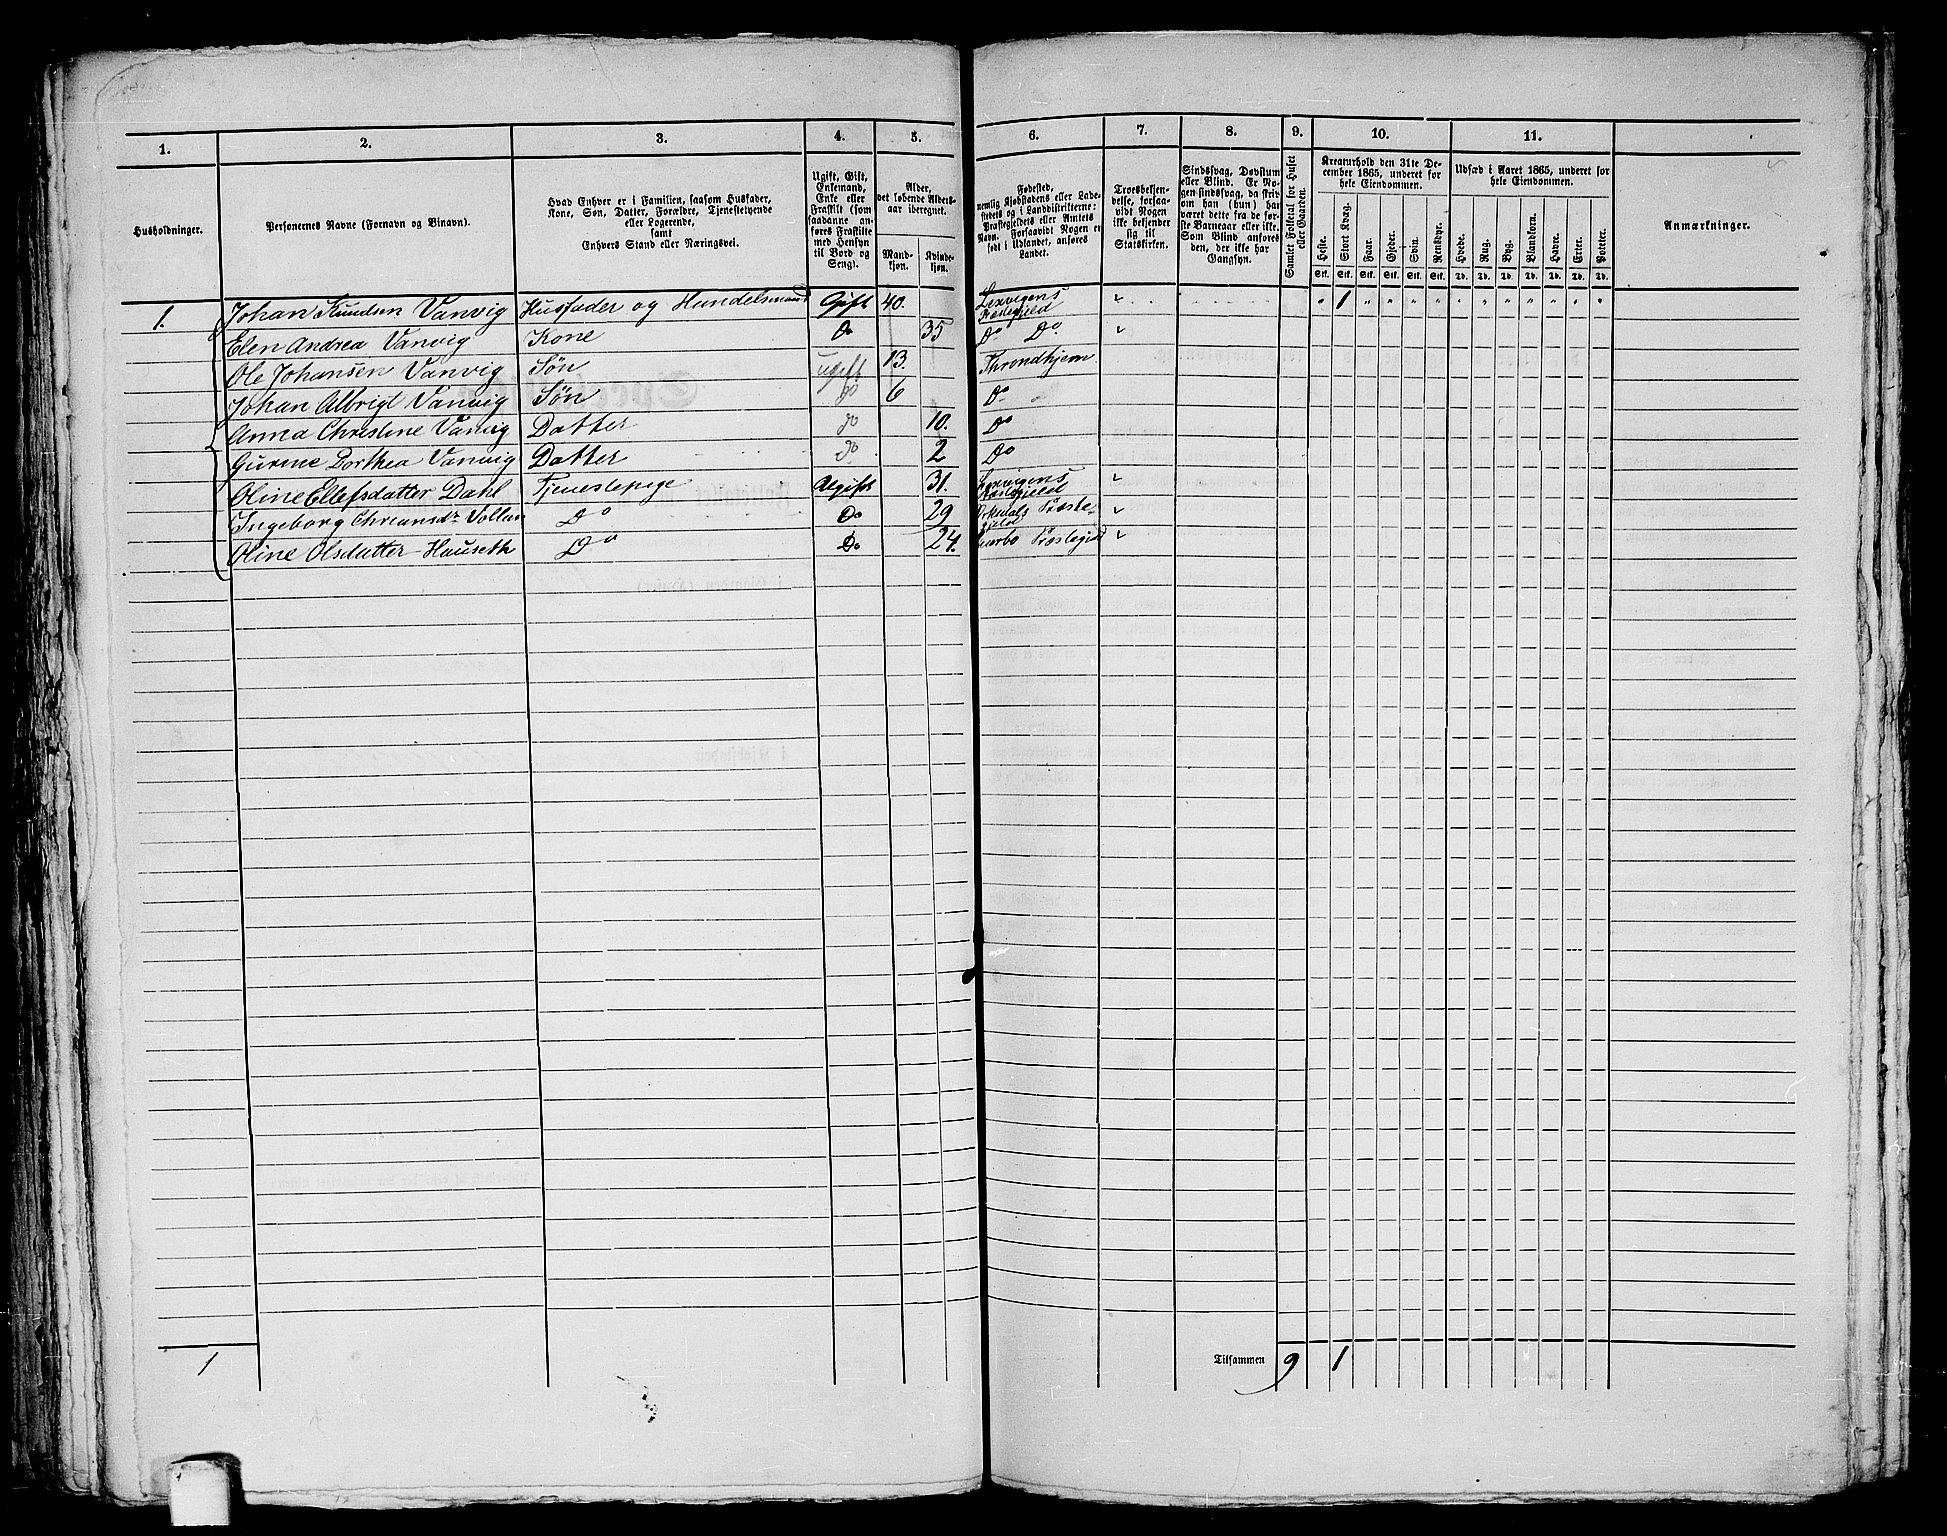 1. 2. 3. 4. 5. 6. 7. 8. 9. 10. 11.
Husholdninger.
Personernes Navne (Fornavn og Binavn).
Hvad Enhver er i Familien, saasom Husfader,
Kone, Søn, Datter, Forældre, Tjenestetyende
eller Logerende,
samt
Enhvers Stand eller Næringsvei.
Ugift, Gift,
Enkemand,
Enke eller
Fraskilt (som
saadanne an-
føres Fraskilte
med Hensyn
til Bord og
Seng).
Alder,
det løbende Alders-
aar iberegnet.
Mand-
kjøn.
Kvinde-
kjøn.
Fødested,
nemlig Kjøbstadens eller Lade-
stedets og i Landdistrikterne:
Præstegjeldets eller Amtets
Navn. Forsaavidt Nogen er
født i Udlandet, anføres
Landet.
Troesbekjen-
delse, forsaa-
vidt Nogen
ikke bekjender
sig til
Statskirken.
Sindssvag, Døvstum
eller Blind. Er No-
gen sindssvag, da skriv
om han (hun) har
været dette fra de før-
ste Barneaar eller ikke.
Som Blind anføres
den, der ikke har
Gangsyn.
Samlet Folketal for Huset
eller Gaarden.
Kreaturhold den 31te De-
cember 1865, underet for
hele Eiendommen.
Heste. Stort Kvæg. Faar. Gjeder. Svin. Rensdyr.
Stk. Stk. Stk. Stk. Stk. Stk.
Udsæd i Aaret 1865, underet for
hele Eiendommen.
Hvede. Rug. Byg. Blandkorn. Havre. Erter. Poteter.
Td. Td. Td. Td. Td. Td. Td.
Anmærkninger.
1. Johan Knudsen Vanvig Husfader og Handelsmand Gift 40. Lexvigens Præstegjeld " " 1 " " " " " " " " " " "
Elen Andrea Vanvig Kone Do 35 Do Do "
Ole Johansen Vanvig Søn ugift 13. Throndhjem
Johan Albrigt Vanvig Søn do 6 Do
Anna Christine Vanvig Datter do 10. Do
Gurine Dorthea Vanvig Datter do 2 Do
Oline Ellefsdatter Dahl Tjenestepige Ugift 31. Lexvigens Præstegjeld "
Ingeborg Do Do 29 Orkedals Præstegjeld "
Oline Olsdatter Hauseth Do Do 24. Præstegjeld "
1 Tilsammen 9 1